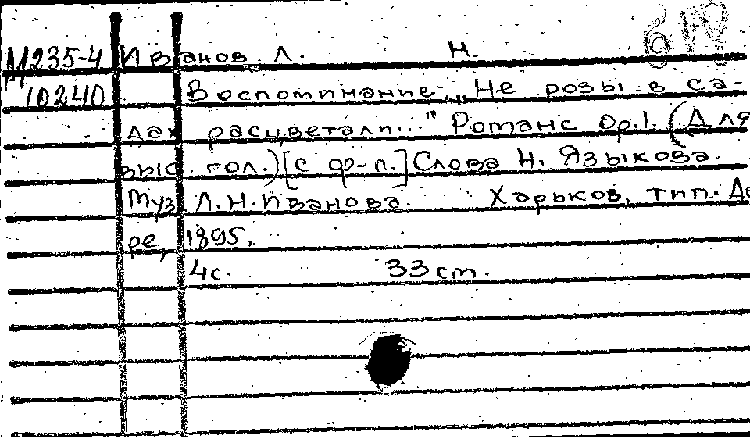 М235-4 Иванов Л. Н.
10240 Воспоминание „Не розы в са-
дах расцветали..." Романс Op.1. (Для
выс. гол.) [с ф-п.] Слова Н. Языкова.
Муз. Л.Н.Иванова. Харьков, тип. Да
ре, 1895.
4с. 33 cm.